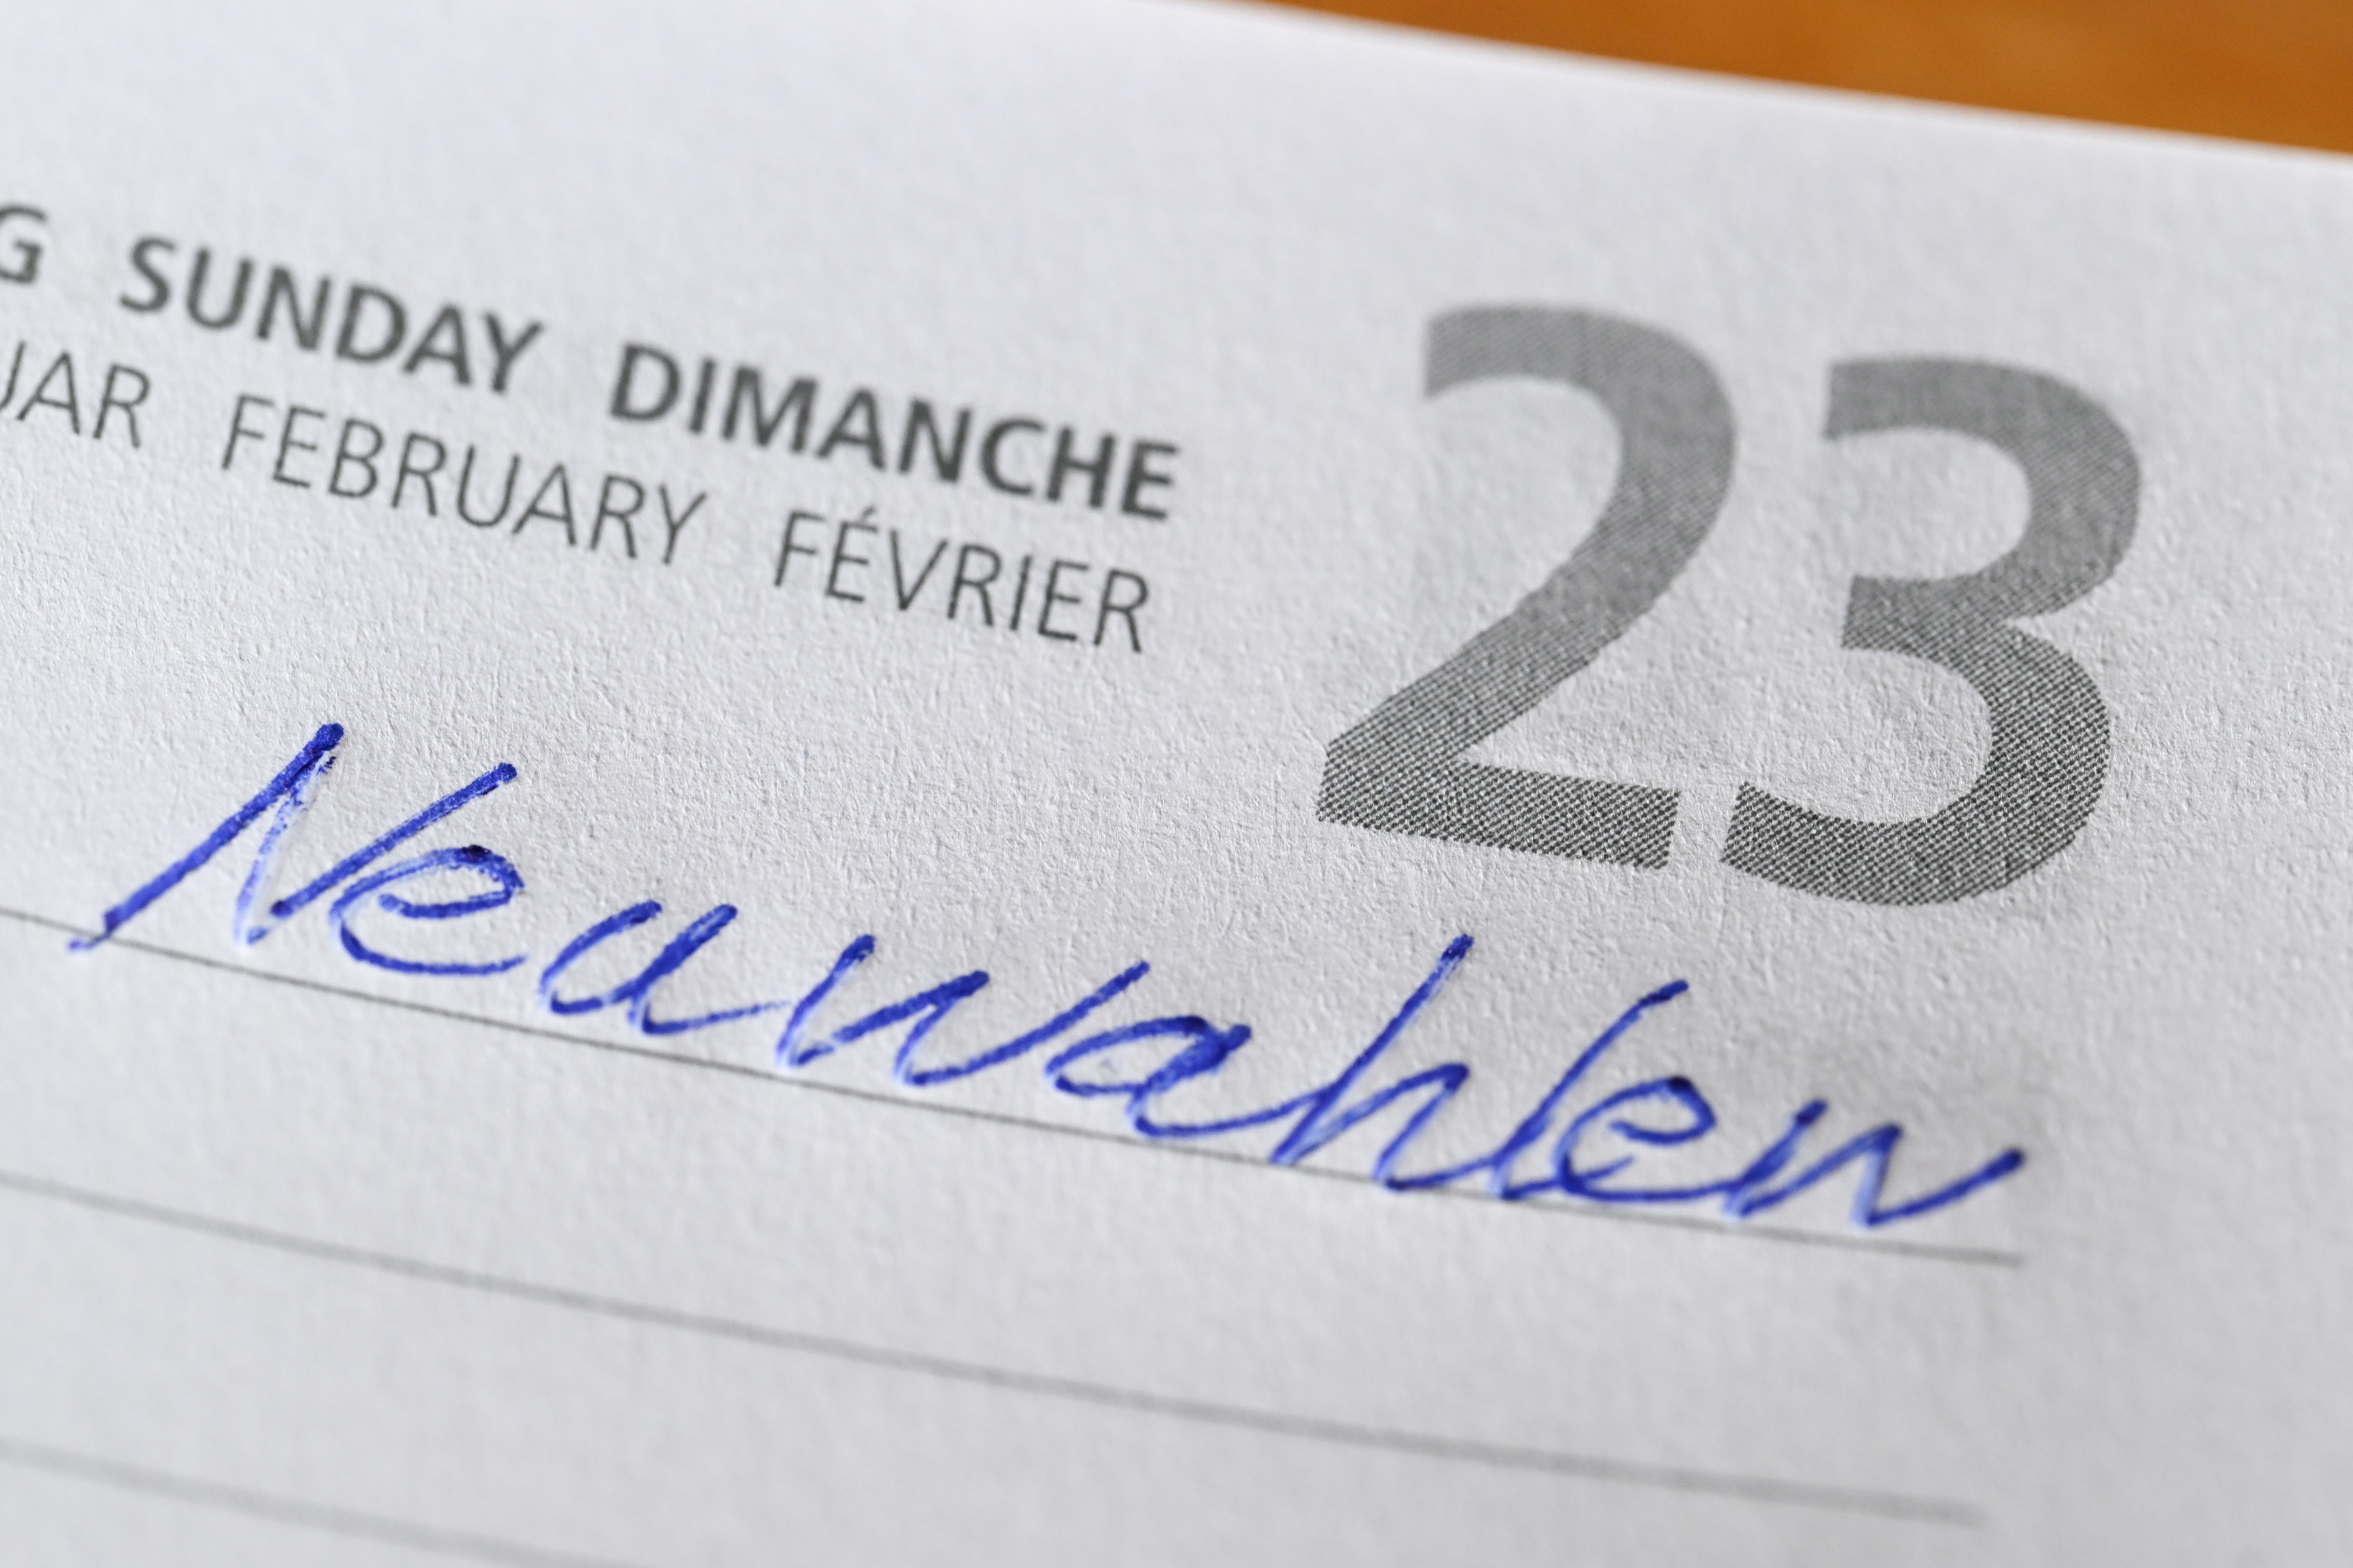 G SUNDAY DIMANCHE 23
UAR FEBRUARY FÉVRIER
Neuwahlen